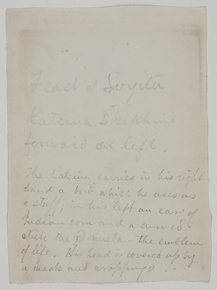 Feast of
Katcina
forward on left.
The Katcina carries in his right
hand a bow which he uses as
a staff; in his left an ear of
Indian corn and a curved
stick the - the emblem
of life. His head is covered up by
a mask and wrappings.